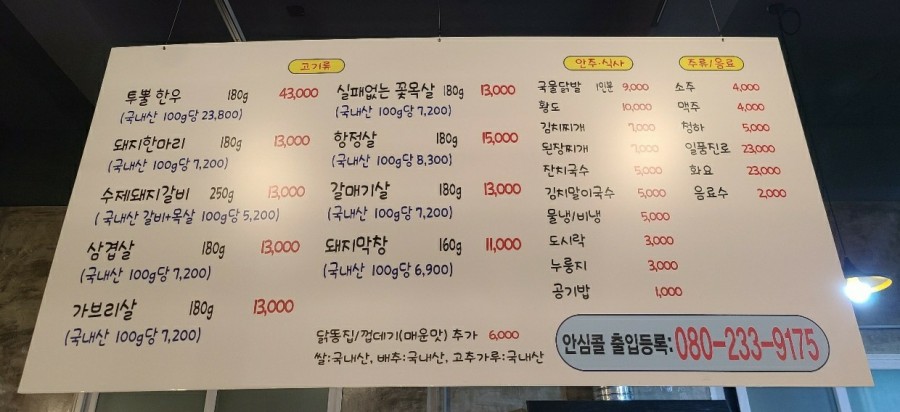 고기류
투뿔 한우 180g 43,000
(국내산 100g당 23,800)
돼지한마리 180g 13,000
(국내산 100g당 7,200)
수제돼지갈비 250g 13,000
(국내산 갈비+목살 100g당 5,200)
삼겹살 180g 13,000
(국내산 100g당 7,200)
가브리살 180g 13,000
(국내산 100g당 7,200)
실패없는 꽃목살 180g 13,000
(국내산 100g당 7,200)
항정살 180g 15,000
(국내산 100g당 8,300)
갈매기살 180g 13,000
(국내산 100g당 7,200)
돼지막창 160g 11,000
(국내산 100g당 6,900)
닭똥집/껍데기(매운맛) 추가 6,000
쌀:국내산, 배추:국내산, 고추가루:국내산
안주·식사
국물닭발 1인분 9,000
황도 10,000
김치찌개 7,000
된장찌개 7,000
잔치국수 5,000
김치말이국수 5,000
물냉/비냉 5,000
도시락 3,000
누룽지 3,000
공기밥 1,000
주류/음료
소주 4,000
맥주 4,000
청하 5,000
일품진로 23,000
화요 23,000
음료수 2,000
안심콜 출입등록:080-233-9175